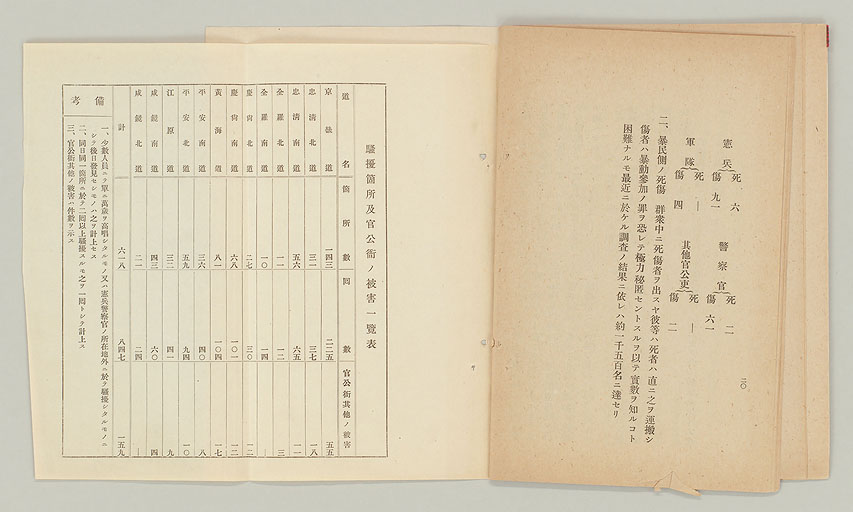 二〇
憲兵 死 六
傷 九一
警察官 死 二
傷 六一
軍隊 死 —
傷 四
其他官公吏 死 —
傷 二
二、暴民側ノ死傷 群衆中ニ死傷者ヲ出スヤ彼等ハ死者ハ直ニ之ヲ運搬シ
傷者ハ暴動參加ノ罪ヲ恐レテ極力秘匿セントスルヲ以テ實數ヲ知ルコト
困難ナルモ最近ニ於ケル調査ノ結果ニ依レハ約一千五百名ニ達セリ
騷擾箇所及官公衙ノ被害一覽表
道名 箇所數 回數 官公衙其他ノ被害
京畿道 一四三 二二五 五五
忠清北道 三一 三七 一八
忠清南道 五六 六五 一一
全羅北道 一一 一二 三
全羅南道 一〇 一四 —
慶尚北道 二七 三〇 一二
慶尚南道 六八 一〇一 一二
黃海道 八一 一〇四 一七
平安南道 三六 四〇 八
平安北道 五九 九四 一〇
江原道 三二 四一 九
咸鏡南道 四三 六〇 四
咸鏡北道 二一 二四 —
計 六一八 八四七 一五九
備考
一、少數人員ニテ單ニ萬歲ヲ高唱シタルモノ又ハ憲兵警察官ノ所在地外ニ於テ騷擾シタルモノニ
シテ後日發見セシモノハ之ヲ計上セス
二、同日同一箇所ニ於テ二囘以上騷擾スルモ之ヲ一囘トシテ計上ス
三、官公衙其他ノ被害ハ件數ヲ示ス